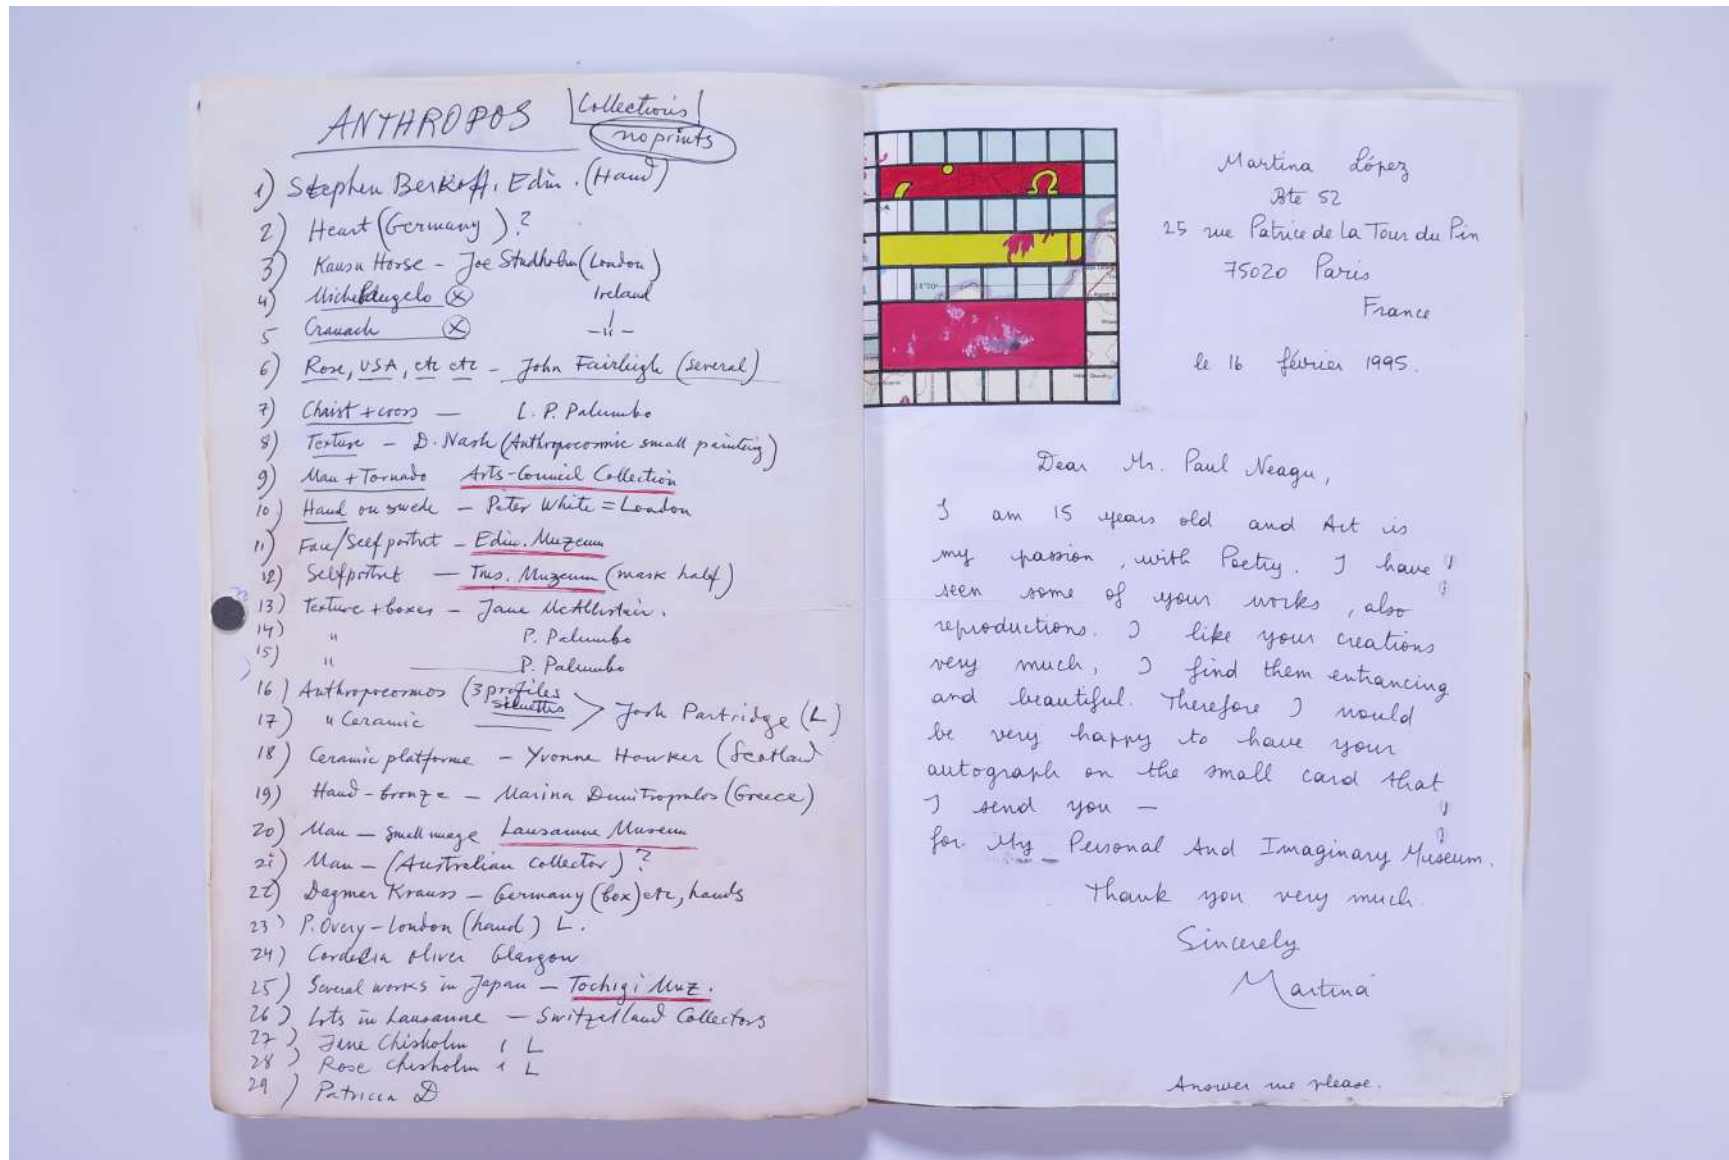 ANTHROPOS
Collections
no prints
1) Stephen Berkoff, Edin. (Hand)
2) Heart (Germany) ?
3) Kausu Horse - Joe Studholm (London)
4) Michelangelo ⓧ Ireland
5 Cranach ⓧ -"-
6) Rose, USA, etc etc - John Fairleigh (several)
7) Christ + cross - L. P. Palumbo
8) Texture - D. Nash (Anthropocosmic small painting)
9) Man + Tornado Arts-Council Collection
10) Hand on swede - Peter White = London
11) / Selfportrt - Edin. Muzeum
12) Selfportrt - Muzeum (mask half)
13) Texture + boxes - Jane McAllistair.
14) " P. Palumbo
15) " P. Palumbo
16) Anthropocosmos (3 profiles
siluettes
17) " Ceramic Josh Partridge (L)
18) Ceramic platforme - Yvonne Hawker (Scotland
19) Hand-bronze - Marina Dimitropulos (Greece)
20) Man - small image Lausanne Museum
21) Man - (Australian collector) ?
22) Dagmar Krauss - Germany (box) etc, hands
23) P. Overy - London (hand) L.
24) Cordelia Oliver Glasgow
25) Several works in Japan - Tochigi Muz.
26) Lots in Lausanne - Switzelland Collectors
27) Jane Chisholm L
28) Rose Chisholm L
29) Patricia D
Martina López
Bte 52
25 rue Patrice de La Tour du Pin
75020 Paris
France
le 16 février 1995.
Dear Mr. Paul Neagu,
I am 15 years old and Art is
my passion, with Poetry. I have
seen some of your works, also
reproductions. I like your creations
very much, I find them entrancing
and beautiful. Therefore I would
be very happy to have your
autograph on the small card that
I send you -
for My Personal And Imaginary Museum.
Thank you very much.
Sincerely
Martina
Answer me please.